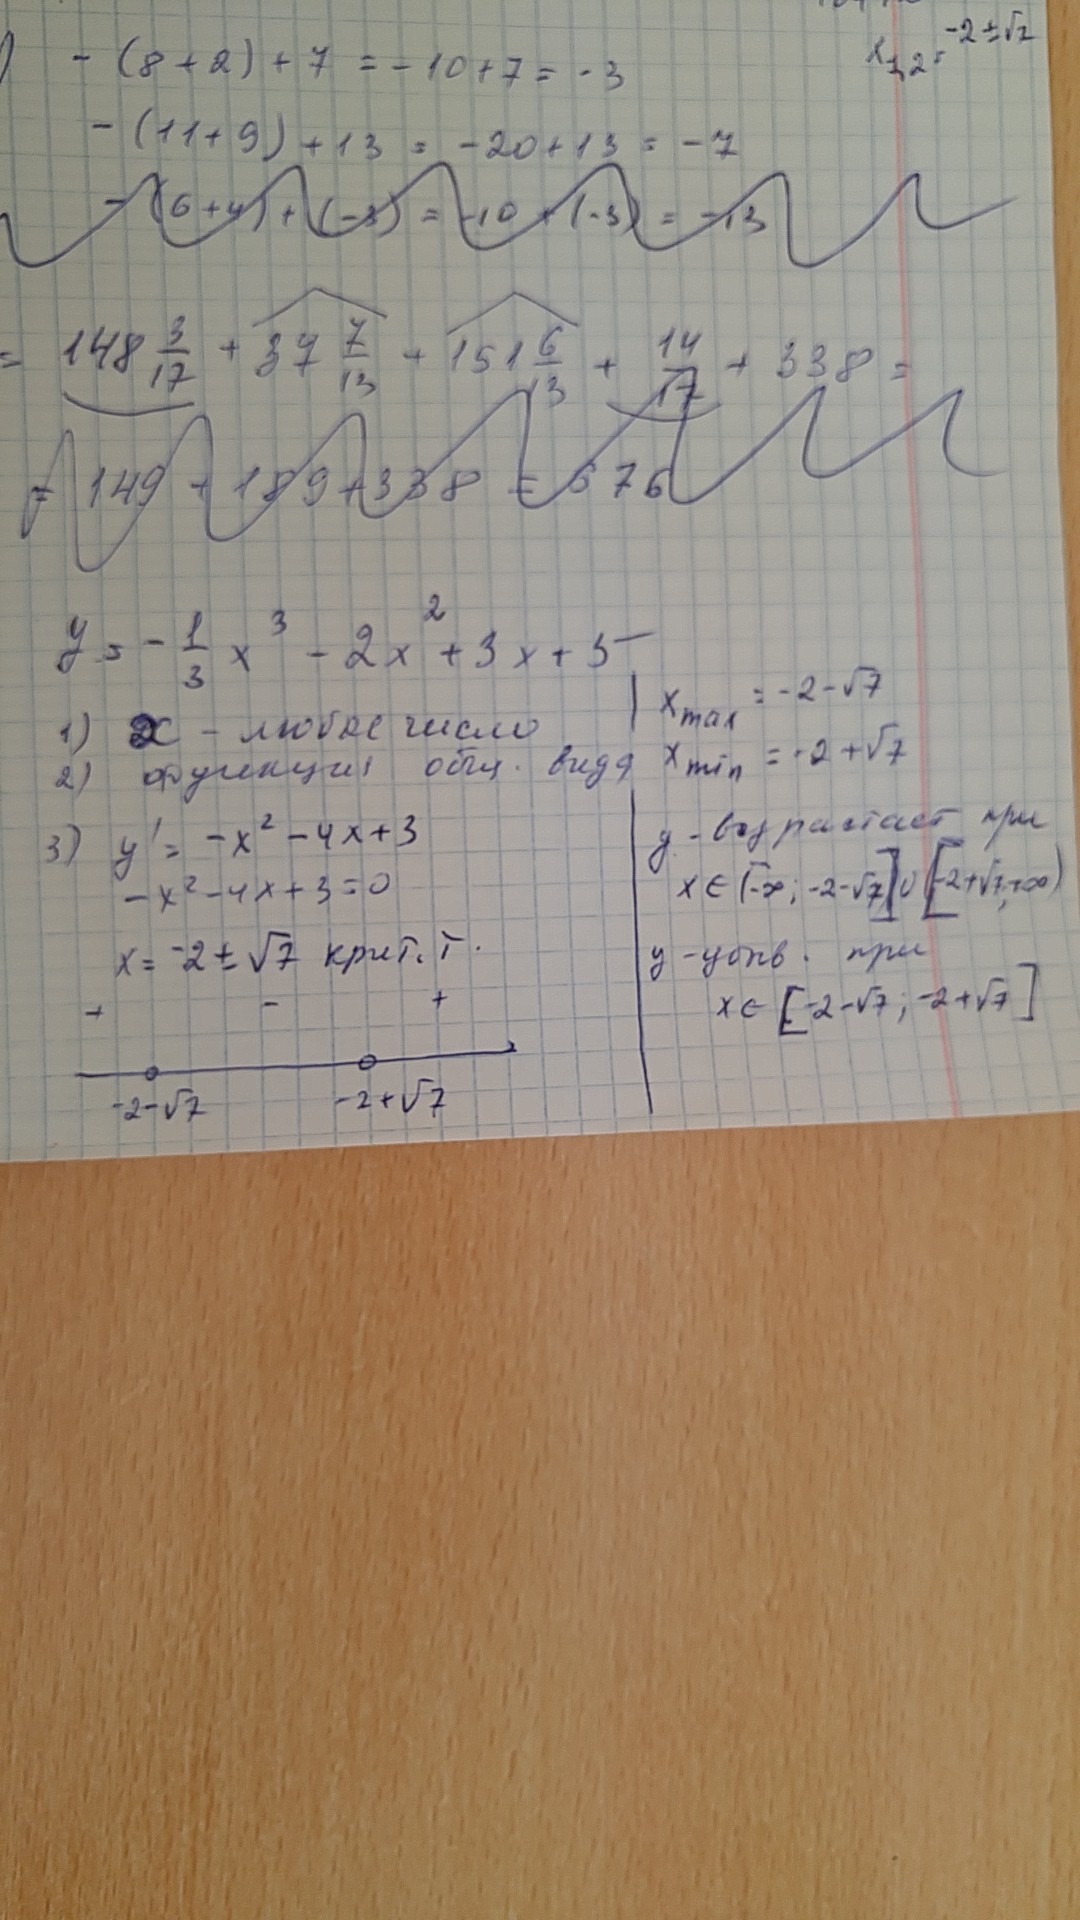 x₁,₂ = -2±√7
- (8+2)+7 = -10+7 = -3
- (11+9)+13 = -20+13 = -7
- (6+4)+(-3) = -10+(-3) = -13
= 148 3/17 + 37 7/13 + 151 6/13 + 14/17 + 338 =
= 149 + 189 + 338 = 676
y = -1/3 x³ - 2x² + 3x + 5
1) x - любое число
2) функция общ. вида
3) y' = -x² - 4x + 3
-x² - 4x + 3 = 0
x = -2 ± √7 крит. т.
+ - +
-2-√7 -2+√7
x max = -2-√7
x min = -2+√7
y - возрастает при
x ∈ (-∞; -2-√7] ∪ [-2+√7; +∞)
y - убыв. при
x ∈ [-2-√7; -2+√7]